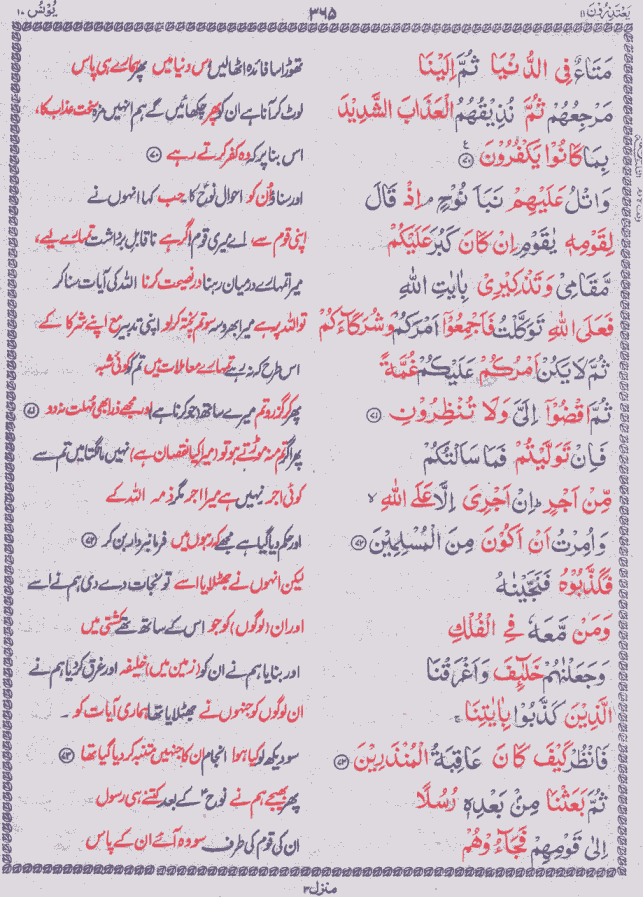 یَعْتَذِرُوْنَ ۱۱
۳۶۵
یُوْنُس ۱۰
مَتَاعٌ فِی الدُّنْیَا ثُمَّ اِلَیْنَا
تھوڑا سا فائدہ اٹھالیں اس دنیا میں پھر ہمارے ہی پاس
مَرْجِعُهُمْ ثُمَّ نُذِیْقُهُمُ الْعَذَابَ الشَّدِیْدَ
لوٹ کر آنا ہے ان کو پھر چکھائیں گے ہم انہیں مزہ سخت عذاب کا،
بِمَا كَانُوْا یَكْفُرُوْنَ ۷۰
اس بنا پر کہ وہ کفر کرتے رہے ۷۰
وَاتْلُ عَلَیْهِمْ نَبَاَ نُوْحٍ ۘ اِذْ قَالَ
اور سناؤ ان کو احوال نوحؑ کا جب کہا انہوں نے
لِقَوْمِهٖ یٰقَوْمِ اِنْ كَانَ كَبُرَ عَلَیْكُمْ
اپنی قوم سے، اے میری قوم اگر ہے ناقابل برداشت تمہارے لیے،
مَّقَامِیْ وَتَذْكِیْرِیْ بِاٰیٰتِ اللّٰهِ
میرا تمہارے درمیان رہنا اور نصیحت کرنا اللہ کی آیات سنا کر
فَعَلَی اللّٰهِ تَوَكَّلْتُ فَاَجْمِعُوْۤا اَمْرَكُمْ وَشُرَكَآءَكُمْ
تو اللہ پر ہے میرا بھروسہ سو تم پختہ کر لو اپنی تدبیر مع اپنے شرکا کے
ثُمَّ لَا یَكُنْ اَمْرُكُمْ عَلَیْكُمْ غُمَّةً
اس طرح کہ نہ رہے تمہارے معاملات میں تم کو کوئی شبہ
ثُمَّ اقْضُوْۤا اِلَیَّ وَلَا تُنْظِرُوْنِ ۷۱
پھر کر گزرو تم میرے ساتھ (جو کرنا ہے) اور مجھے ذرا بھی مہلت نہ دو ۷۱
فَاِنْ تَوَلَّیْتُمْ فَمَا سَاَلْتُكُمْ
پھر اگر تم منہ موڑتے ہو تو (میرا کیا نقصان ہے) نہیں مانگتا میں تم سے
مِّنْ اَجْرٍ ؕ اِنْ اَجْرِیَ اِلَّا عَلَی اللّٰهِ ۙ
کوئی اجر نہیں ہے میرا اجر مگر ذمہ اللہ کے
وَاُمِرْتُ اَنْ اَكُوْنَ مِنَ الْمُسْلِمِیْنَ ۷۲
اور حکم دیا گیا ہے مجھے کہ رہوں میں فرمانبردار بن کر ۷۲
فَكَذَّبُوْهُ فَنَجَّیْنٰهُ
لیکن انہوں نے جھٹلایا اسے تو نجات دے دی ہم نے اسے
وَمَنْ مَّعَهٗ فِی الْفُلْكِ
اور ان (لوگوں) کو جو اس کے ساتھ تھے کشتی میں
وَجَعَلْنٰهُمْ خَلٰٓئِفَ وَاَغْرَقْنَا
اور بنایا ہم نے ان کو (زمین میں) خلیفہ اور غرق کر دیا ہم نے
الَّذِیْنَ كَذَّبُوْا بِاٰیٰتِنَا ۚ
ان لوگوں کو جنہوں نے جھٹلایا تھا ہماری آیات کو ۔
فَانْظُرْ كَیْفَ كَانَ عَاقِبَةُ الْمُنْذَرِیْنَ ۷۳
سو دیکھ لو کیا ہوا انجام ان کا جنہیں متنبہ کر دیا گیا تھا ۷۳
ثُمَّ بَعَثْنَا مِنْۢ بَعْدِهٖ رُسُلًا
پھر بھیجے ہم نے نوحؑ کے بعد کتنے ہی رسول
اِلٰی قَوْمِهِمْ فَجَآءُوْهُمْ
ان کی قوم کی طرف سو وہ آئے ان کے پاس
منزل ۳